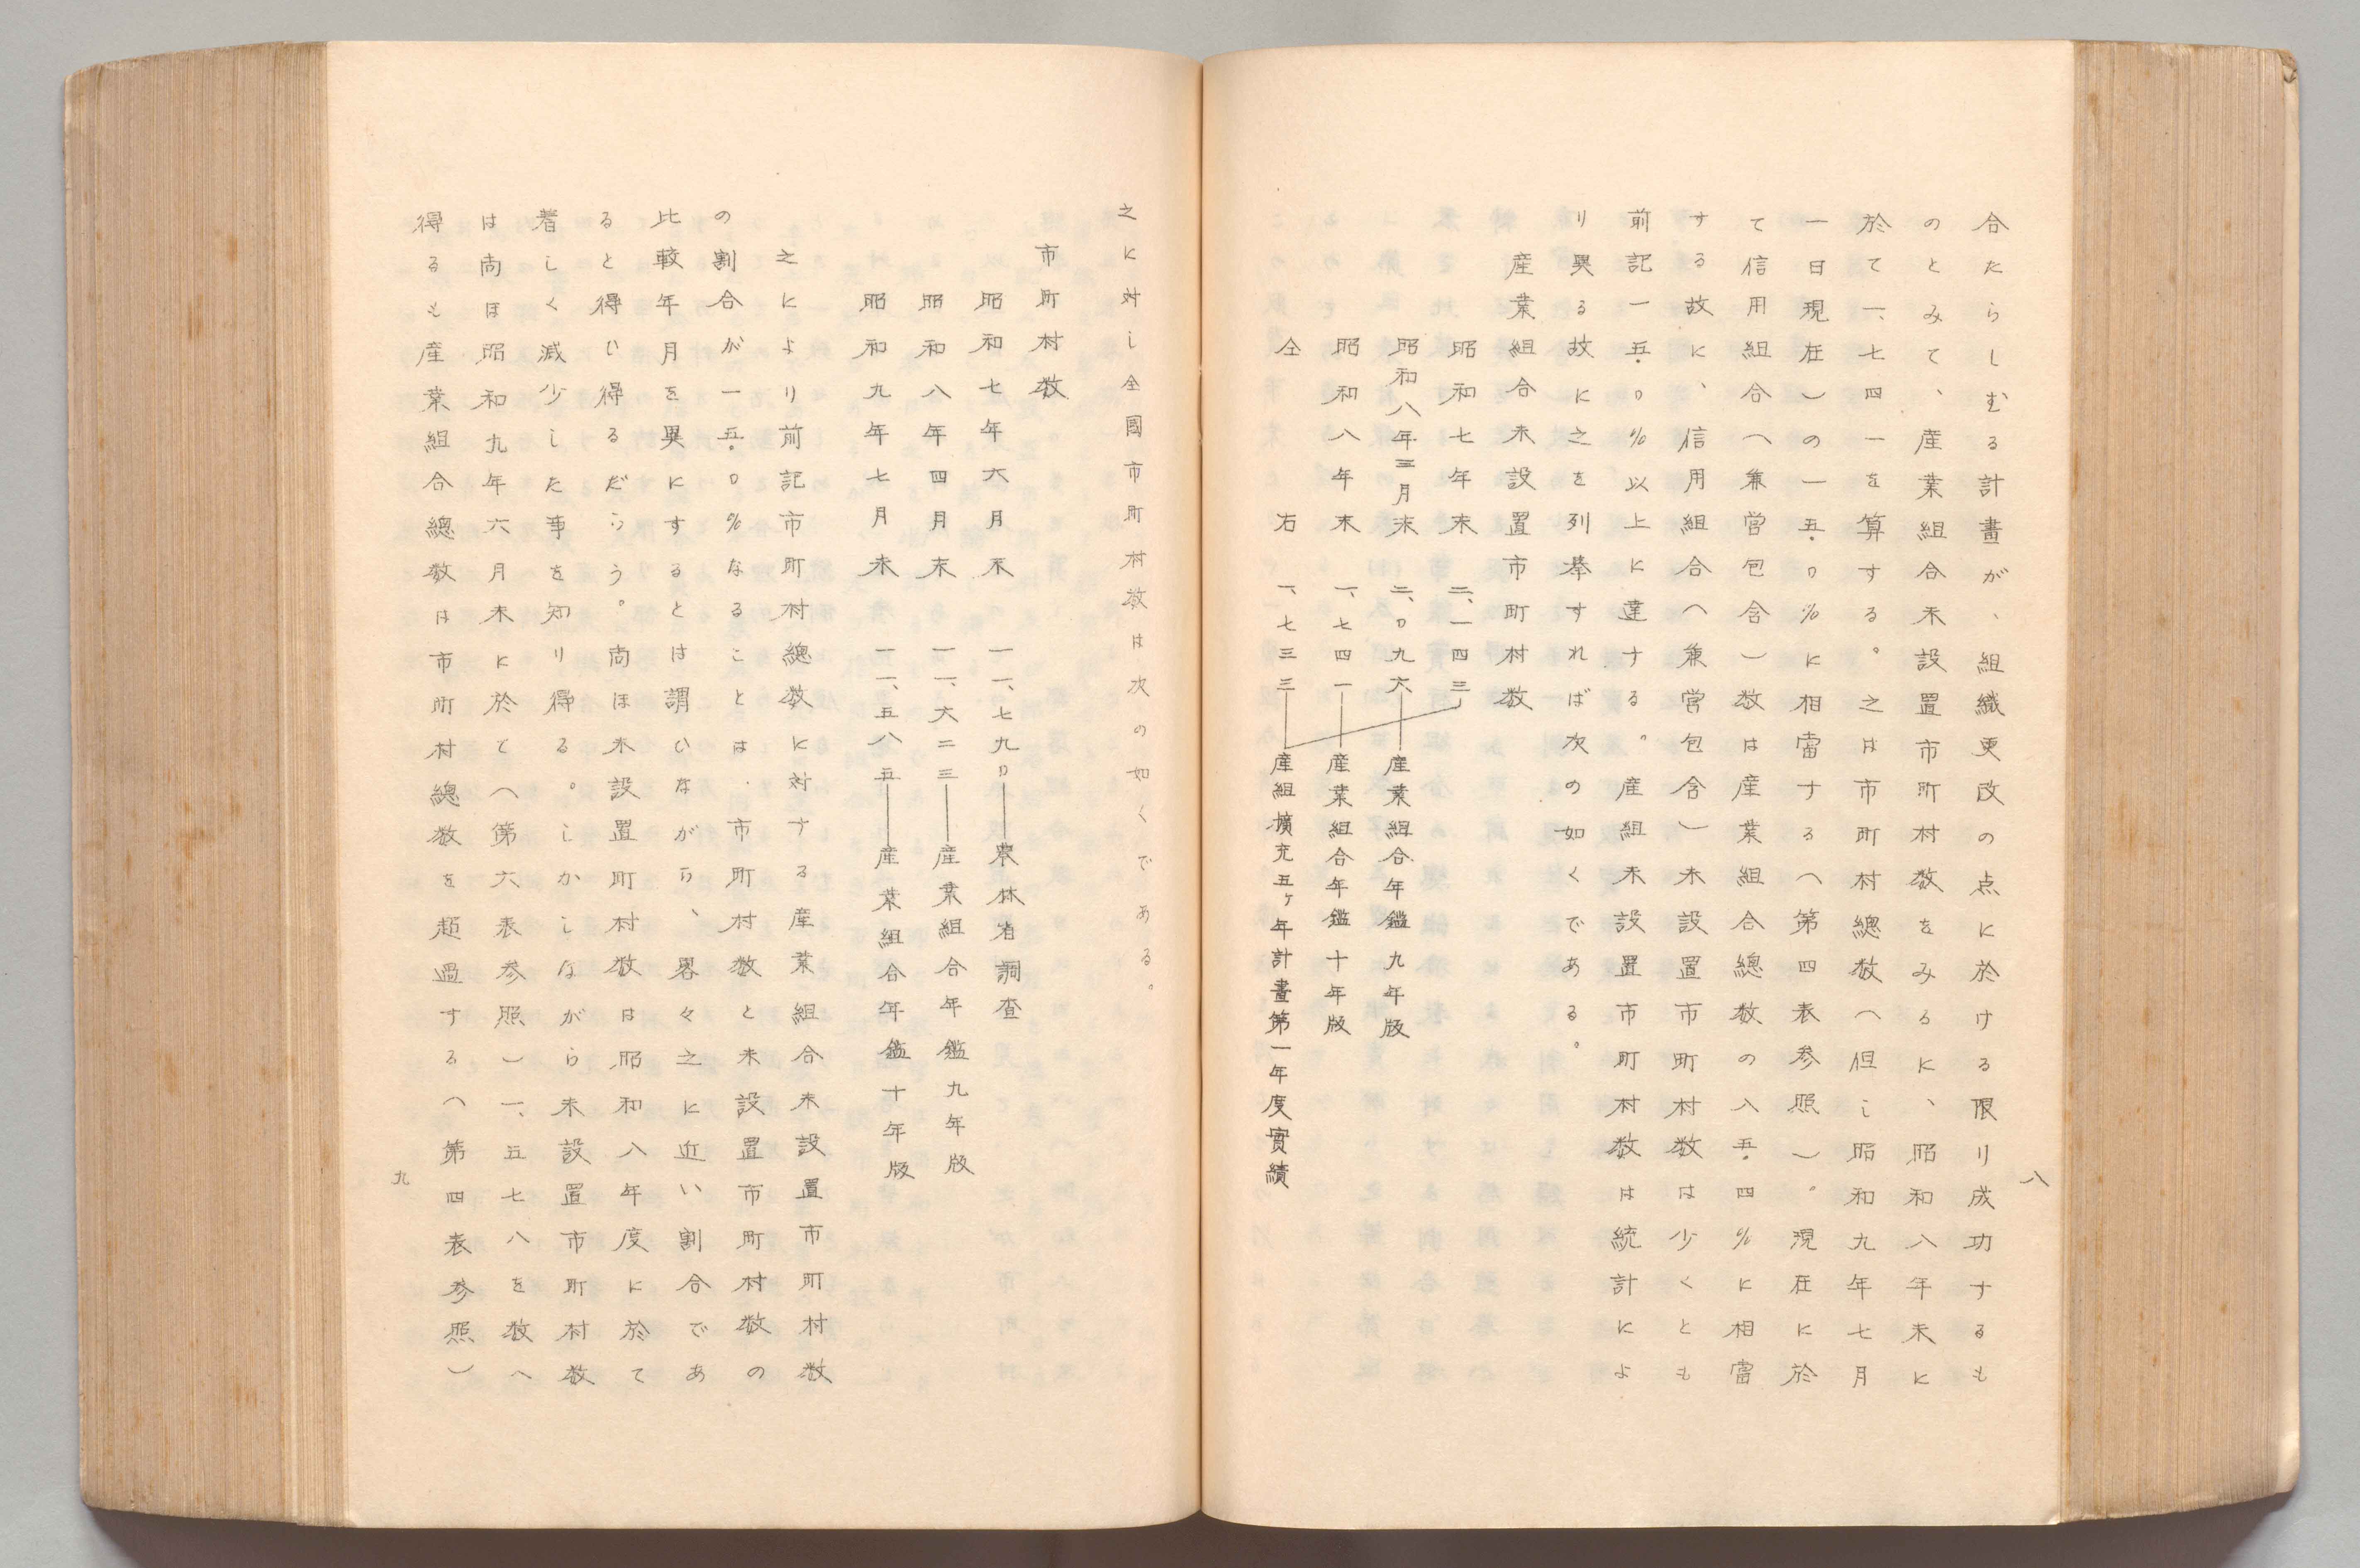 八
合たらしむる計畫が、組織更改の点に於ける限り成功するも
のとみて、産業組合未設置市町村数をみるに、昭和八年末に
於て一、七四一を算する。之は市町村總数(但し昭和九年七月
一日現在)の一五・〇%に相當する(第四表参照)。現在に於
て信用組合(兼営包含)数は産業組合總数の八五・四%に相當
する故に、信用組合(兼営包含)未設置市町村数は少くとも
前記一五・〇%以上に達する。産組未設置市町村数は統計によ
り異る故に之を列挙すれば次の如くである。
産業組合未設置市町村数
昭和七年末 二、一四三
昭和八年三月末 二、〇九六―産業組合年鑑九年版
昭和八年末 一、七四一―産業組合年鑑十年版
仝右 一、七三三―産組擴充五ヶ年計畫第一年度實績
之に対し全國市町村数は次の如くである。
市町村数
昭和七年六月末 一一、七九〇―農林省調査
昭和八年四月末 一一、六二三―産業組合年鑑九年版
昭和九年七月末 一一、五八五―産業組合年鑑十年版
之により前記市町村總数に対する産業組合未設置市町村数
の割合が一五・〇%なることは、市町村数と未設置市町村数の
比較年月を異にするとは謂ひながら、畧々之に近い割合であ
ると得ひ得るだらう。尚ほ未設置町村数は昭和八年度に於て
著しく減少した事を知り得る。しかしながら未設置市町村数
は尚ほ昭和九年六月末に於て(第六表参照)一、五七八を数へ
得るも産業組合總数は市町村總数を超過する(第四表参照)
九